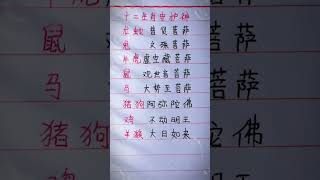 十二生肖守护神
龙蛇 普贤菩萨
兔 文殊菩萨
牛虎 虚空藏菩萨
鼠 观世音菩萨
马 大势至菩萨
猪狗 阿弥陀佛
鸡 不动明王
羊猴 大日如来